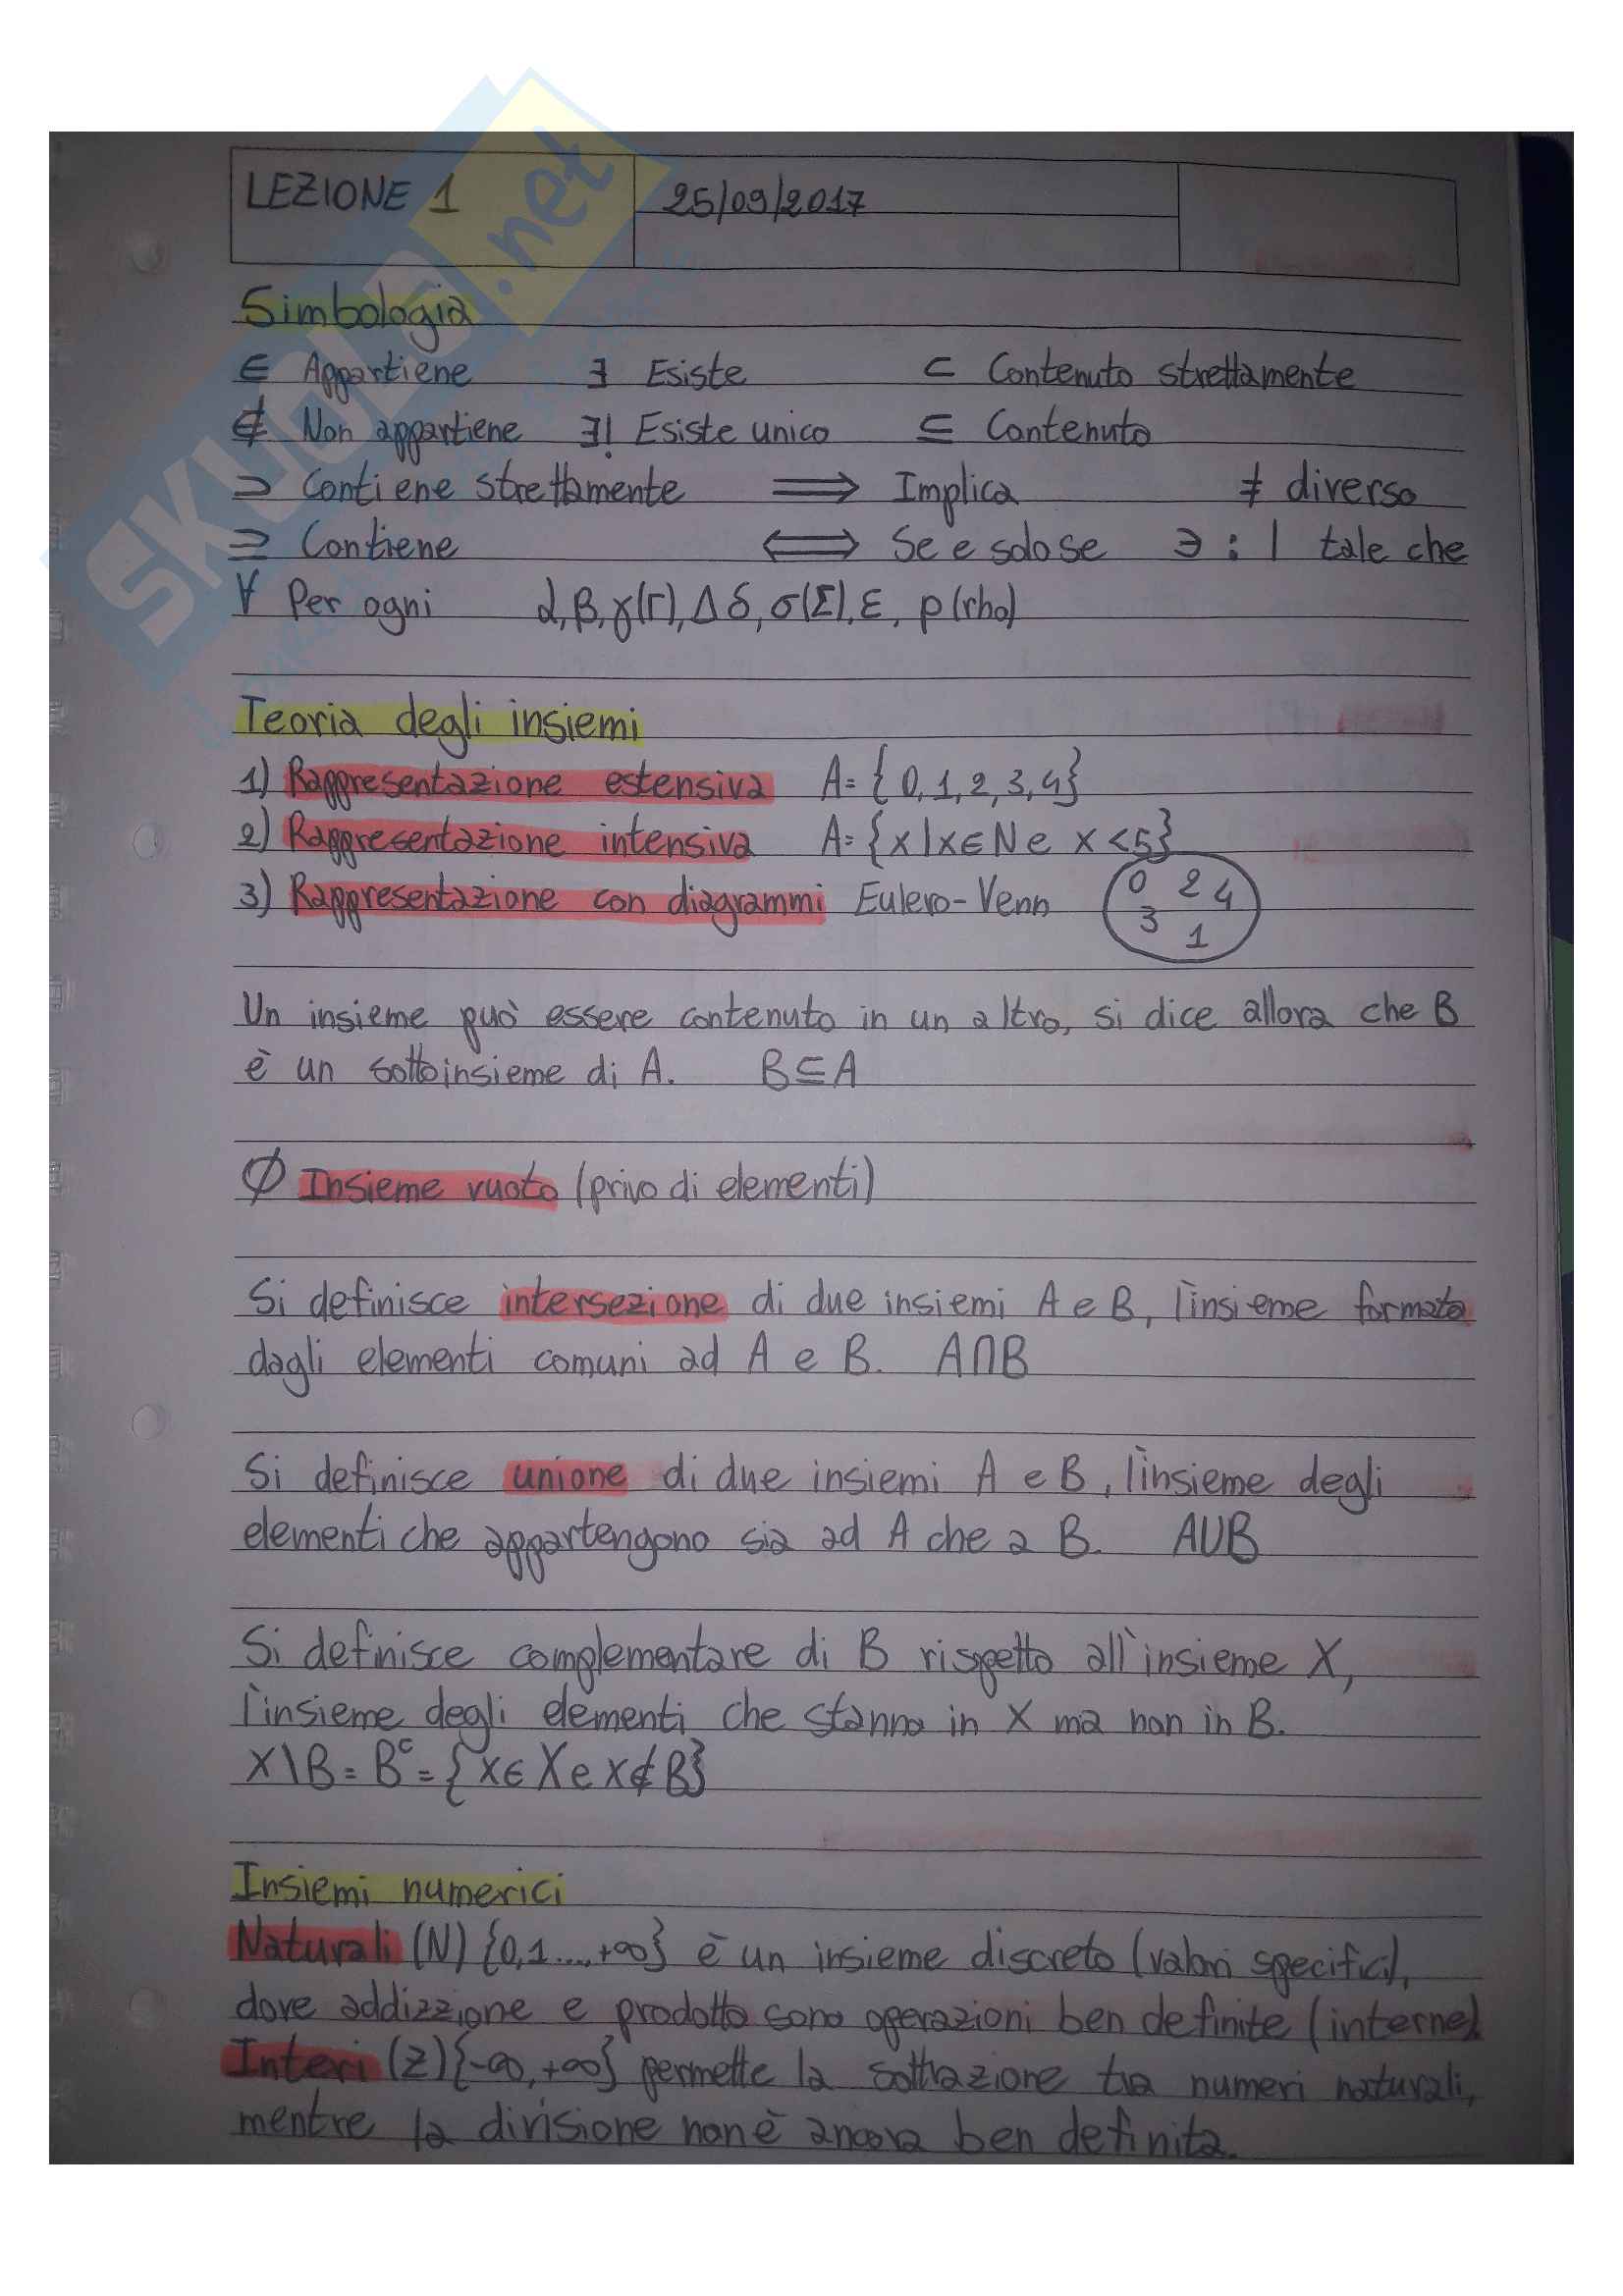 LEZIONE 1 25/09/2017
Simbologia
∈ Appartiene ∃ Esiste ⊂ Contenuto strettamente
∉ Non appartiene ∃! Esiste unico ⊆ Contenuto
⊃ Contiene strettamente ⟹ Implica ≠ diverso
⊇ Contiene ⟺ Se e solo se ∋ : | tale che
∀ Per ogni α, β, γ(Γ), Δ δ, σ(Σ), ε, ρ (rho)
Teoria degli insiemi
1) Rappresentazione estensiva A= {0, 1, 2, 3, 4}
2) Rappresentazione intensiva A= {x | x ∈ N e x < 5}
3) Rappresentazione con diagrammi Eulero-Venn 0 2 4
3 1
Un insieme può essere contenuto in un altro, si dice allora che B
è un sottoinsieme di A. B⊆A
∅ Insieme vuoto (privo di elementi)
Si definisce intersezione di due insiemi A e B, l'insieme formato
dagli elementi comuni ad A e B. A∩B
Si definisce unione di due insiemi A e B, l'insieme degli
elementi che appartengono sia ad A che a B. A∪B
Si definisce complementare di B rispetto all'insieme X,
l'insieme degli elementi che stanno in X ma non in B.
X\B = Bᶜ = {x ∈ X e x ∉ B}
Insiemi numerici
Naturali (N) {0,1...,+∞} è un insieme discreto (valori specifici),
dove addizzione e prodotto sono operazioni ben definite (interne).
Interi (Z) {-∞, +∞} permette la sottrazione tra numeri naturali,
mentre la divisione non è ancora ben definita.
SKUOLA.net